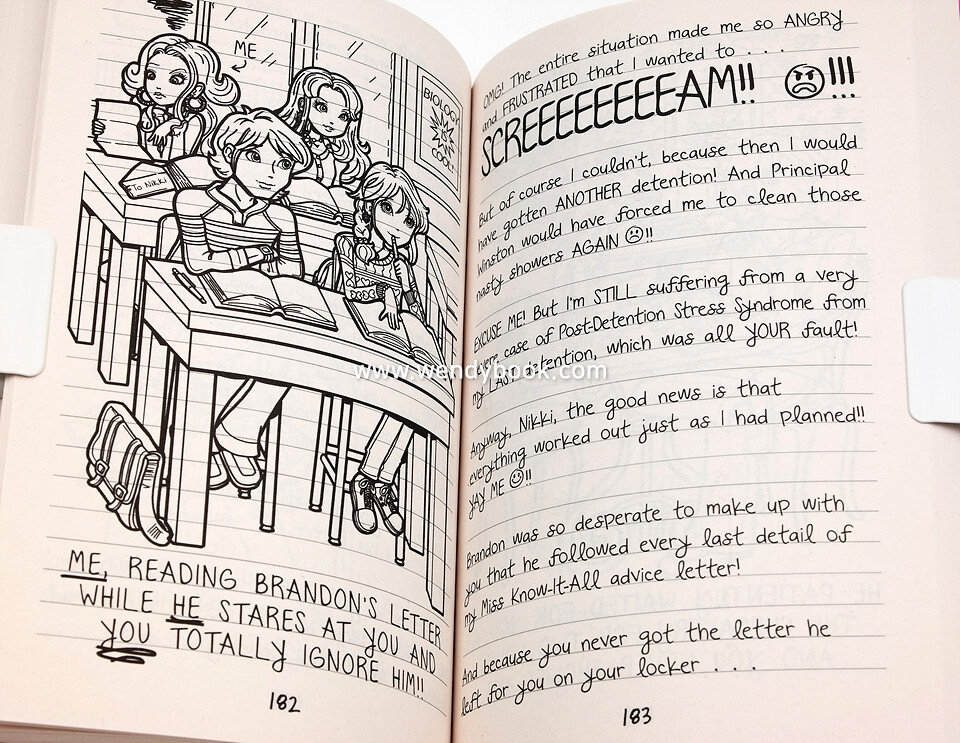 ME
BIOLOGY
IS
COOL!
To Nikki
ME, READING BRANDON'S LETTER
WHILE HE STARES AT YOU AND
YOU TOTALLY IGNORE HIM!!
182
OMG! The entire situation made me so ANGRY
and FRUSTRATED that I wanted to . . .
SCREEEEEEEEAM!! ☹!!!
But of course I couldn't, because then I would
have gotten ANOTHER detention! And Principal
Winston would have forced me to clean those
nasty showers AGAIN ☹!!
EXCUSE ME! But I'm STILL suffering from a very
case of Post-Detention Stress Syndrome from
my LAST detention, which was all YOUR fault!
www.wendybook.com
Anyway, Nikki, the good news is that
everything worked out just as I had planned!!
YAY ME ☺!!
Brandon was so desperate to make up with
you that he followed every last detail of
my Miss Know-It-All advice letter!
And because you never got the letter he
left for you on your locker . . .
183